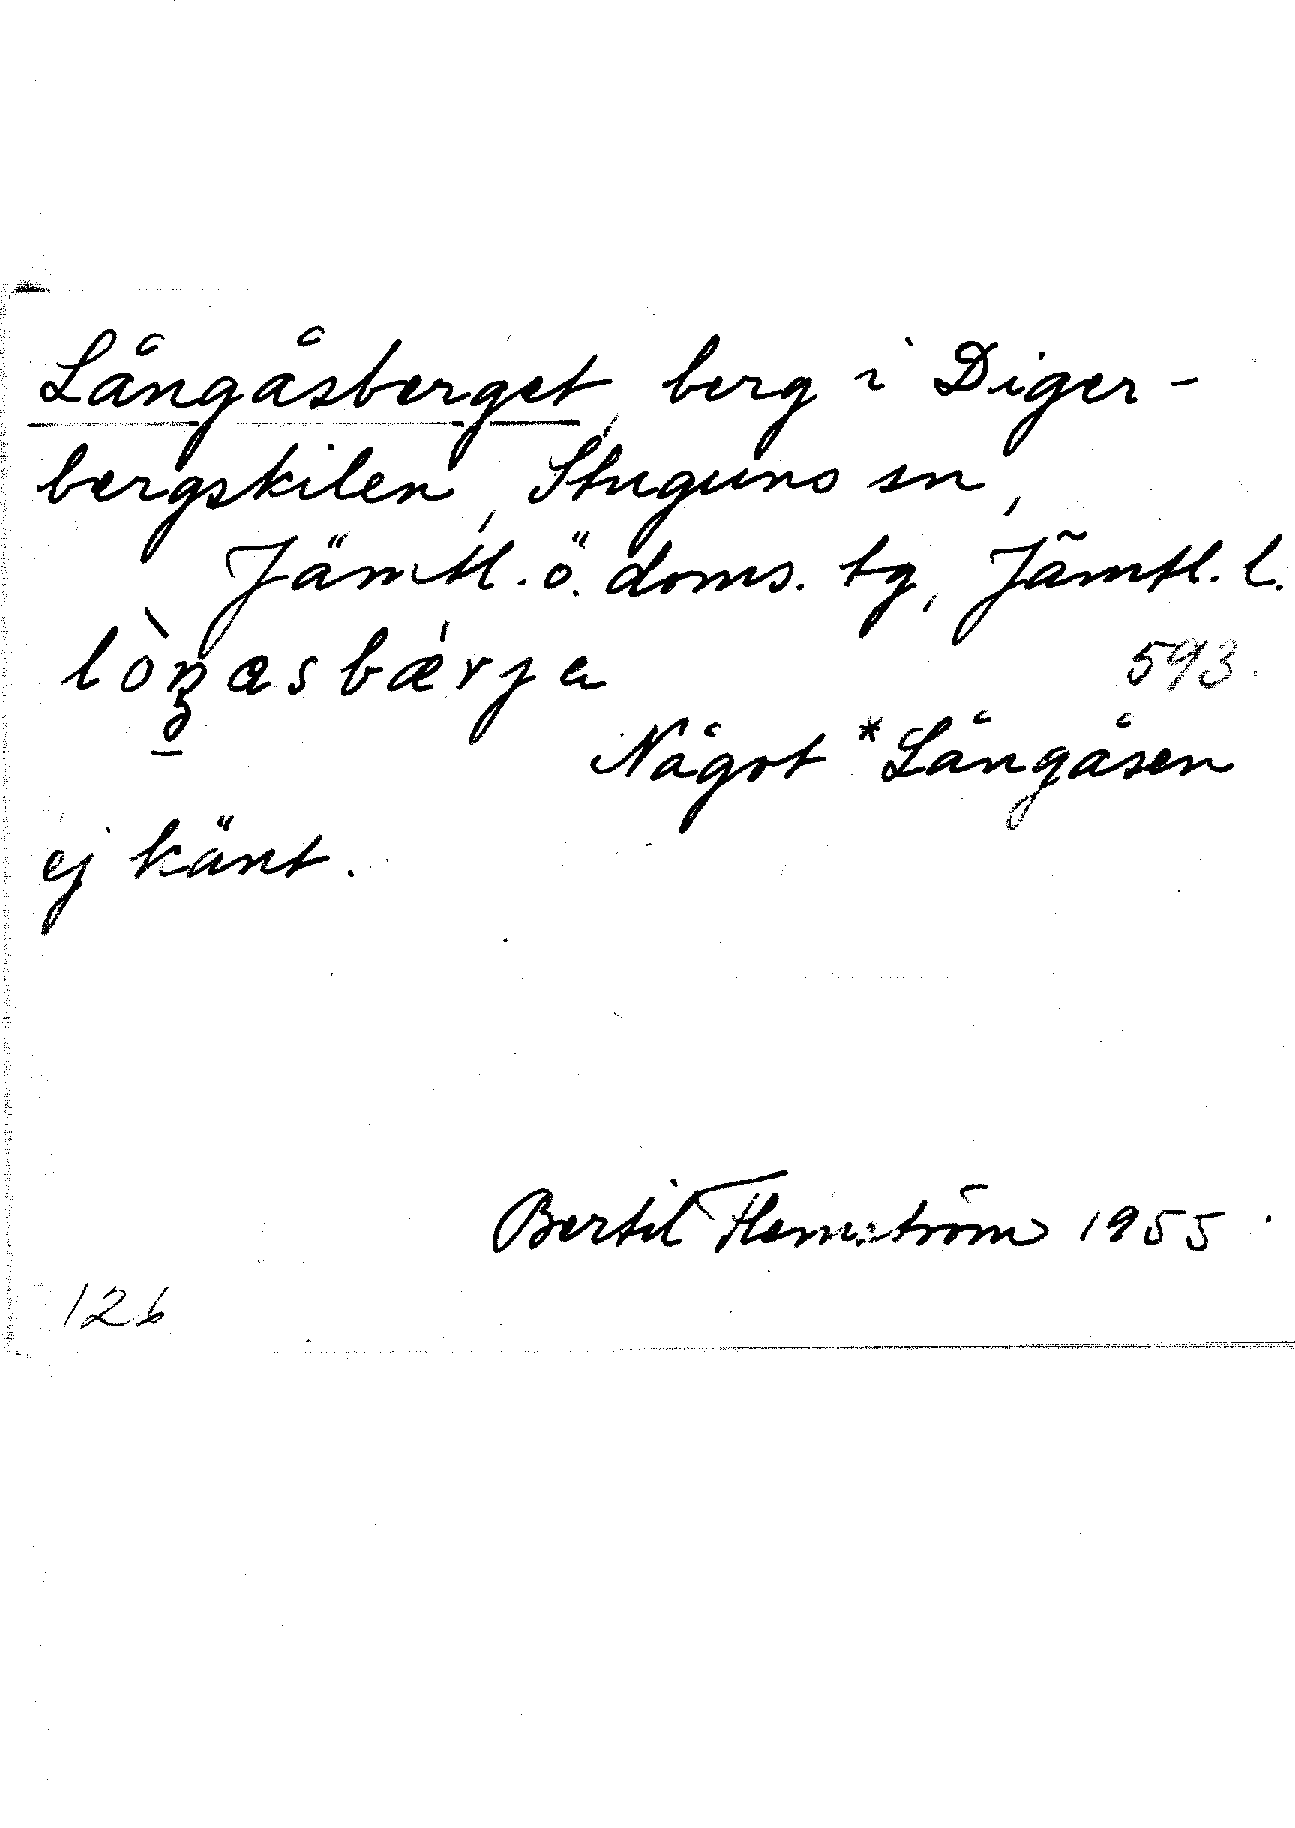 Långåsberget, berg i Diger-
bergskilen, Stuguns sn,
Jämtl. ö. doms. tg, Jämtl. l.
lòŋæsbǽrja 593.
Något *Långåsen
ej känt.
Bertil Flemström 1955.
126